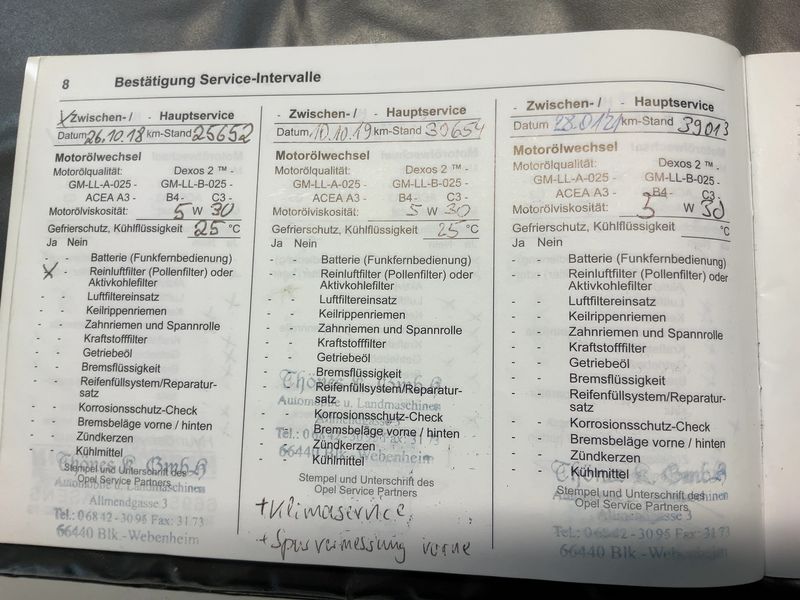 8 Bestätigung Service-Intervalle
X Zwischen- / - Hauptservice
Datum 26.10.18 km-Stand 25652
Motorölwechsel
Motorölqualität: Dexos 2 ™ -
GM-LL-A-025 - GM-LL-B-025 -
ACEA A3 - B4 - C3 -
Motorölviskosität: 5 W 30
Gefrierschutz, Kühlflüssigkeit 25 °C
Ja Nein
- - Batterie (Funkfernbedienung)
X - Reinluftfilter (Pollenfilter) oder
Aktivkohlefilter
- - Luftfiltereinsatz
- - Keilrippenriemen
- - Zahnriemen und Spannrolle
- - Kraftstofffilter
- - Getriebeöl
- - Bremsflüssigkeit
- - Reifenfüllsystem/Reparatur-
satz
- - Korrosionsschutz-Check
- - Bremsbeläge vorne / hinten
- - Zündkerzen
- - Kühlmittel
Thönes K. GmbH
Stempel und Unterschrift des
Opel Service Partners
Automobile u. Landmaschinen
Allmendgasse 3
Tel.: 0 68 42 - 30 95 Fax: 31 73
66440 Blk.-Webenheim
- Zwischen- / - Hauptservice
Datum 10.10.19 km-Stand 39654
Motorölwechsel
Motorölqualität: Dexos 2 ™ -
GM-LL-A-025 - GM-LL-B-025 -
ACEA A3 - B4 - C3 -
Motorölviskosität: 5 W 30
Gefrierschutz, Kühlflüssigkeit 25 °C
Ja Nein
- - Batterie (Funkfernbedienung)
- - Reinluftfilter (Pollenfilter) oder
Aktivkohlefilter
- - Luftfiltereinsatz
- - Keilrippenriemen
- - Zahnriemen und Spannrolle
- - Kraftstofffilter
- - Getriebeöl
- - Bremsflüssigkeit
Thönes K. GmbH
- - Reifenfüllsystem/Reparatur-
satz
Automobile u. Landmaschinen
- - Korrosionsschutz-Check
Allmendgasse 3
- - Bremsbeläge vorne / hinten
Tel.: 0 68 42 - 30 95 Fax: 31 73
- - Zündkerzen
66440 Blk.-Webenheim
- - Kühlmittel
Stempel und Unterschrift des
Opel Service Partners
+ Klimaservice
+ Spurvermessung vorne
- Zwischen- / - Hauptservice
Datum km-Stand 39013
Motorölwechsel
Motorölqualität: Dexos 2 ™ -
GM-LL-A-025 - GM-LL-B-025 -
ACEA A3 - B4 - C3 -
Motorölviskosität: 5 W 30
Gefrierschutz, Kühlflüssigkeit °C
Ja Nein
- - Batterie (Funkfernbedienung)
- - Reinluftfilter (Pollenfilter) oder
Aktivkohlefilter
- - Luftfiltereinsatz
- - Keilrippenriemen
- - Zahnriemen und Spannrolle
- - Kraftstofffilter
- - Getriebeöl
- - Bremsflüssigkeit
- - Reifenfüllsystem/Reparatur-
satz
- - Korrosionsschutz-Check
- - Bremsbeläge vorne / hinten
- - Zündkerzen
- - Kühlmittel
Thönes K. GmbH
Stempel und Unterschrift des
Opel Service Partners
Automobile u. Landmaschinen
Allmendgasse 3
Tel.: 0 68 42 - 30 95 Fax: 31 73
66440 Blk.-Webenheim